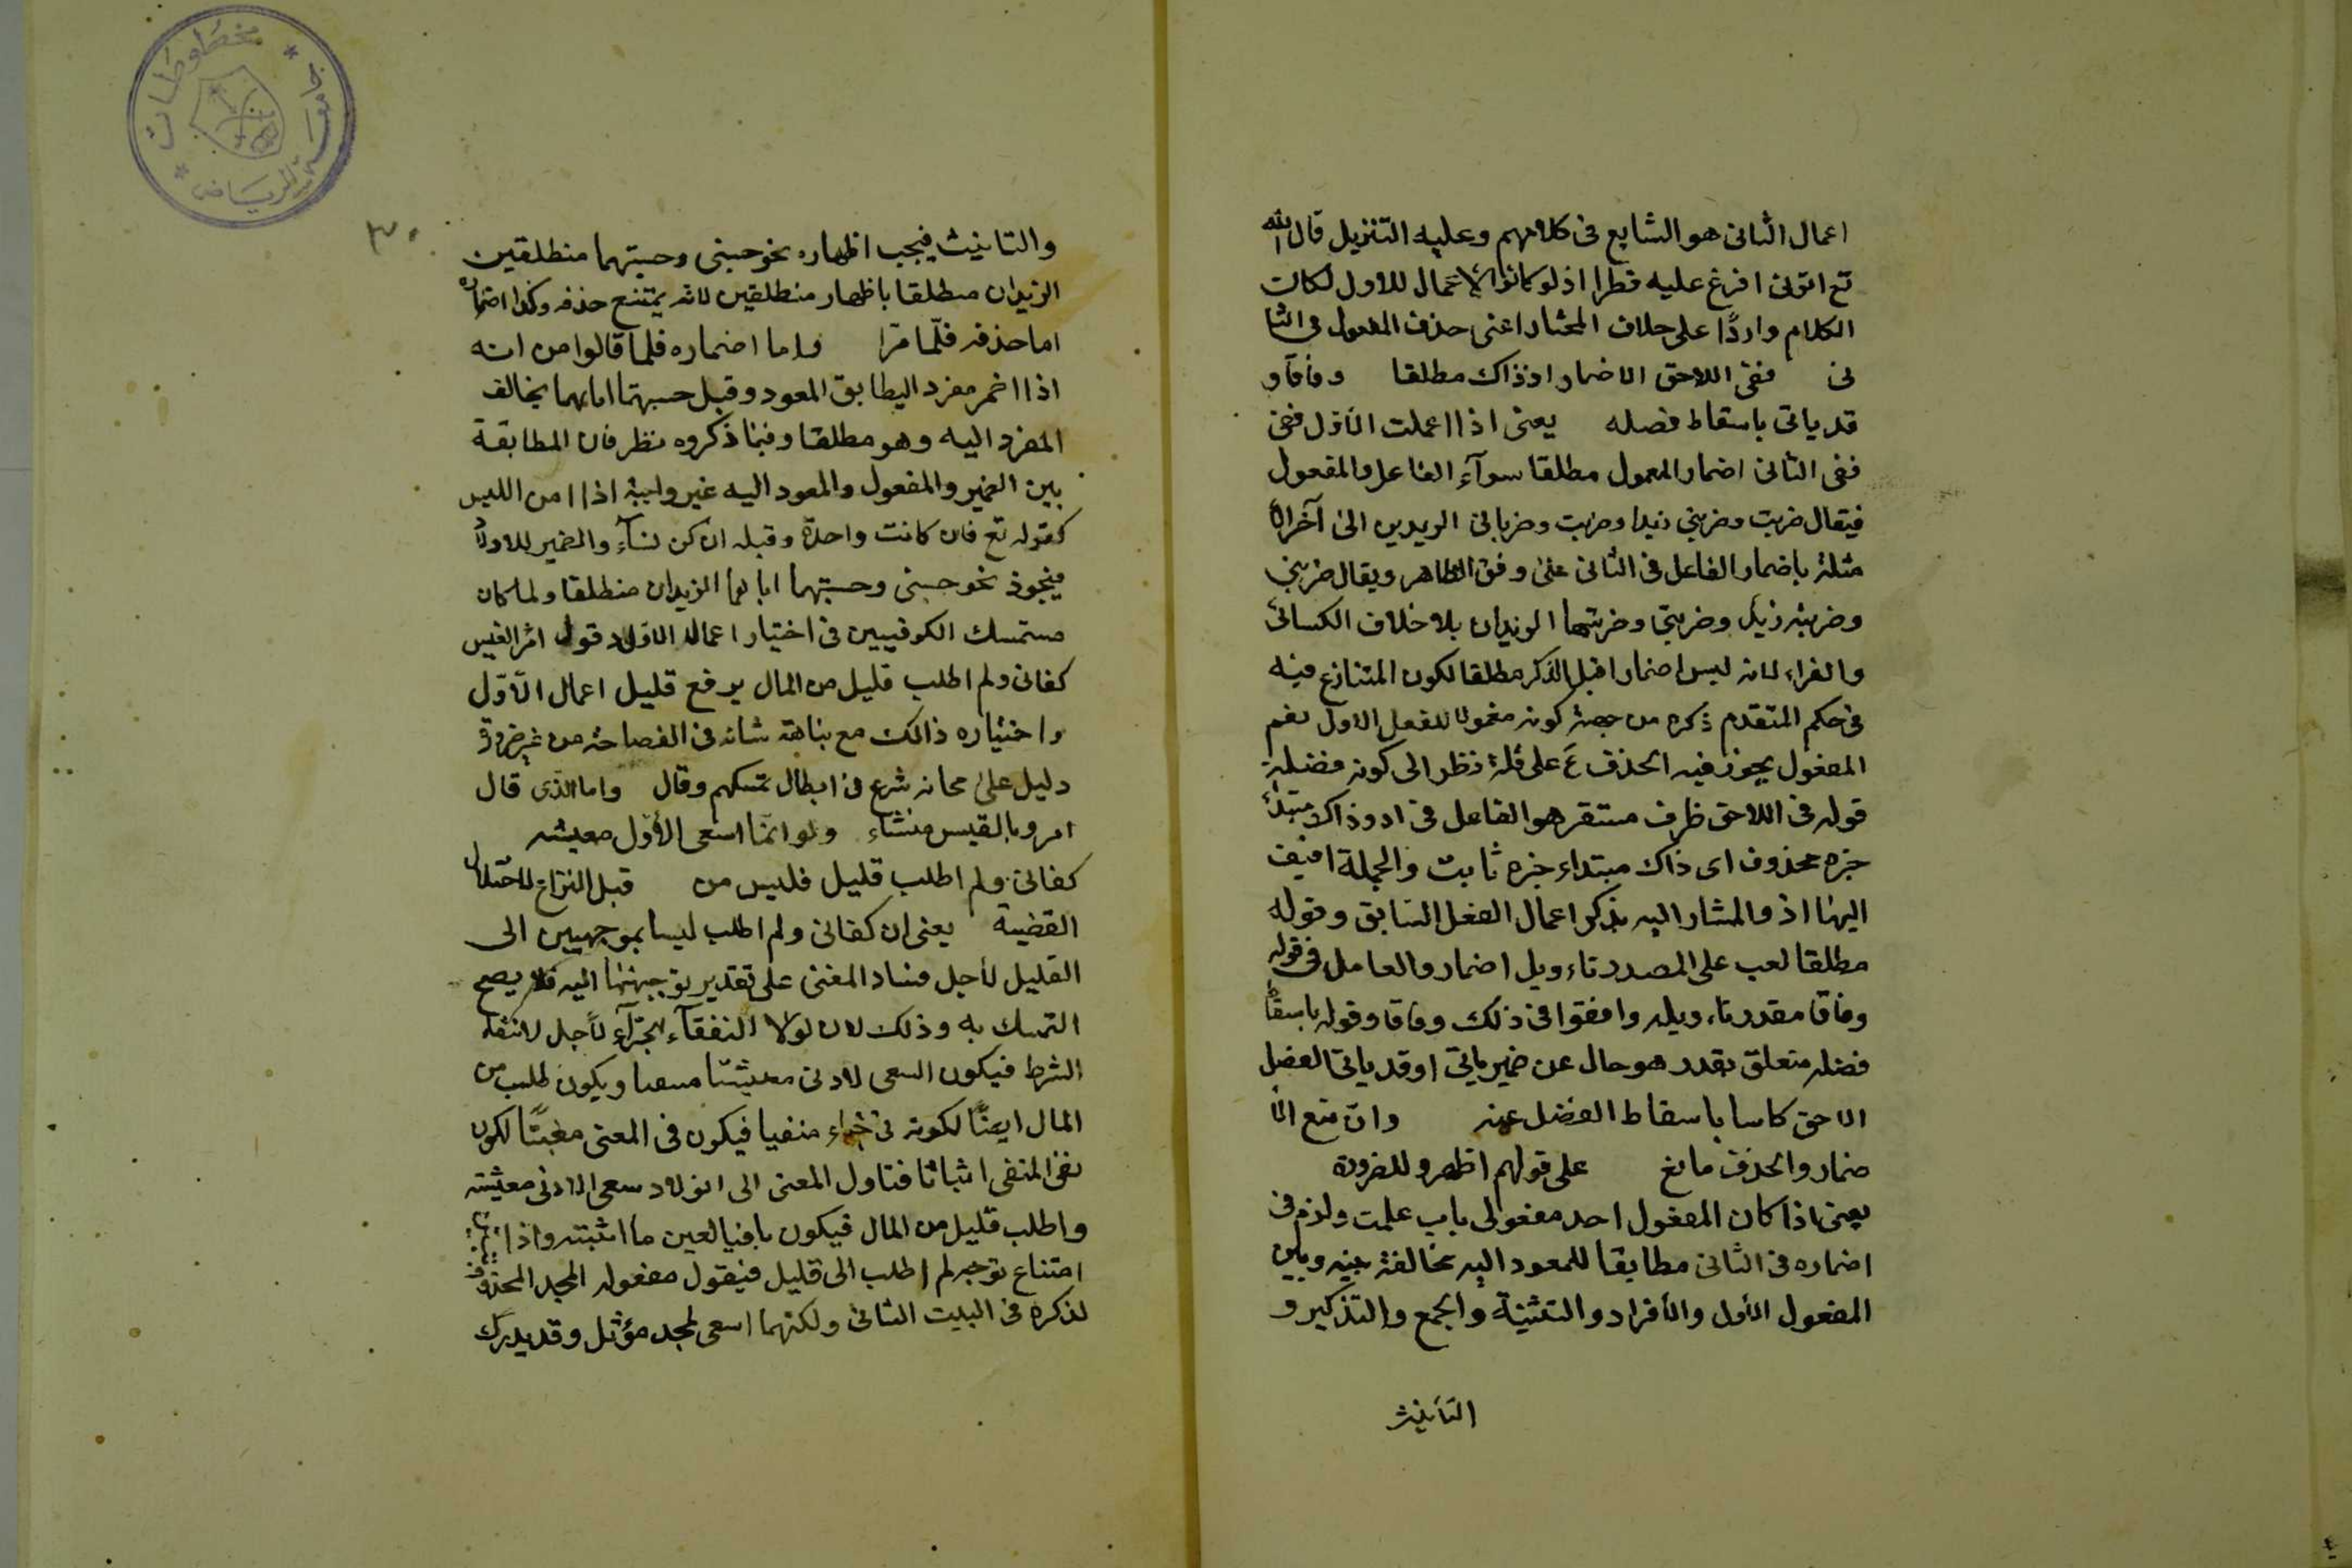 اعمال الثانى هو الشايع فى كلامهم وعليه التنزيل قال الله
تع اتونى افرغ عليه قطرا اذ لو كانوا الاعمال للاول لكان
الكلام واردًا على خلاف المختار اعنى حذف المفعول فى الثا
نى ففى اللاحق الاضمار اذ ذاك مطلقا وفاقا و
قد ياتى باسقاط فضله يعنى اذا اعملت الأوّل ففى
ففى الثانى اضمار المعمول مطلقا سوآء الفاعل والمفعول
فيقال ضربت وضربنى زيدا وضربت وضربانى الزيدين الى آخر الأ
مثلة باضمار الفاعل فى الثانى على وفق الظاهر ويقال ضربنى
وضربته زيد وضربنى وضربتهما الزيدان بلا خلاف الكسائى
والفراء لانه ليس اضمارا قبل الذكر مطلقا لكون المتنازع فيه
فى حكم المتقدم ذكره من جهة كونه معمولا للفعل الاول نعم
المفعول يجوز فيه الحذف على قلة نظر الى كونه فضلة
قوله فى اللاحق ظرف مستقر هو الفاعل فى اذ وذاك مبتدأ
خبره محذوف اى ذاك مبتداء خبره ثابت والجملة اضيف
اليها اذ والمشار اليه بذكر اعمال الفعل السابق وقوله
مطلقا لعب على المصدر تاءويل اضمار والعامل فى قوله
وفاقا مقدر تاءويله وافقوا فى ذلك وفاقا وقوله باسقا
فضله متعلق بقدر هو حال عن ضمير ياتى او قد ياتى الفضل
الاحق كاسا باسقاط الفضل عنه وان منع الا
ضمار والحذف مانع على قولهم اظهر وللضرورة
يعنى اذا كان المفعول احد مفعولى باب علمت ولزم فى
اضماره فى الثانى مطابقا للمعود اليه مخالفة بينه وبين
المفعول الأول والأفراد والتثنية والجمع والتذكير و
التأنيث
٣٠
والتانيث فيجب اظهاره نحو حسبنى وحسبتهما منطلقين
الزيدان منطلقا باظهار منطلقين لانه يمتنع حذفه وكذا اضماره
اما حذفه فلمّا مرّا واما اضماره فلما قالوا من انه
اذا اضمر مفرد اليطابق المعود وقيل حسبتهما اياهما يخالف
المفرد اليه وهو مطلقا وفيما ذكروه نظر فان المطابقة
بين الضمير والمفعول والمعود اليه غير واجبة اذا امن اللبس
كقوله تع فان كانت واحدة وقبله ان كن نسآء والضمير للاولاد
فيجوز نحو حسبنى وحسبتهما اياهما الزيدان منطلقا ولما كان
مستمسك الكوفيين فى اختيار اعمال الاول قول امرالقيس
كفانى ولم اطلب قليل من المال برفع قليل اعمال الأوّل
واختياره ذالك مع بناهة شانه فى الفصاحة من غير ضرورة
دليل على محانه شرع فى ابطال تمسكهم وقال واما الذى قال
امروبالقيس منشاء ولو انمّا اسعى الأوّل معيشه
كفانى ولم اطلب قليل فليس من قبل النزاع لاختلال
القضية يعنى ان كفانى ولم اطلب ليسا بموجهيين الى
القليل لأجل فساد المعنى على تقدير توجيههما اليه فلا يصح
التمسك به وذلك لان لولا النفقآء الجزآء لأجل لانتفاء
الشرط فيكون السعى لادنى معيشتا منعيا ويكون طلب من
المال ايضًا لكونه فى خبراء منفيا فيكون فى المعنى مغبتًا لكون
نفى المنفى اثباتا فتاول المعنى الى انه لاد سعى الادنى معيشته
واطلب قليل من المال فيكون نافيا لعين ما اثبتته واذا
امتناع توجه لم اطلب الى قليل فيقول مفعوله المجد المحذوف
لذكره فى البيت الثانى ولكنهما اسعى لمجد مؤثل وقد يدرك
مخطوطات
الرياض